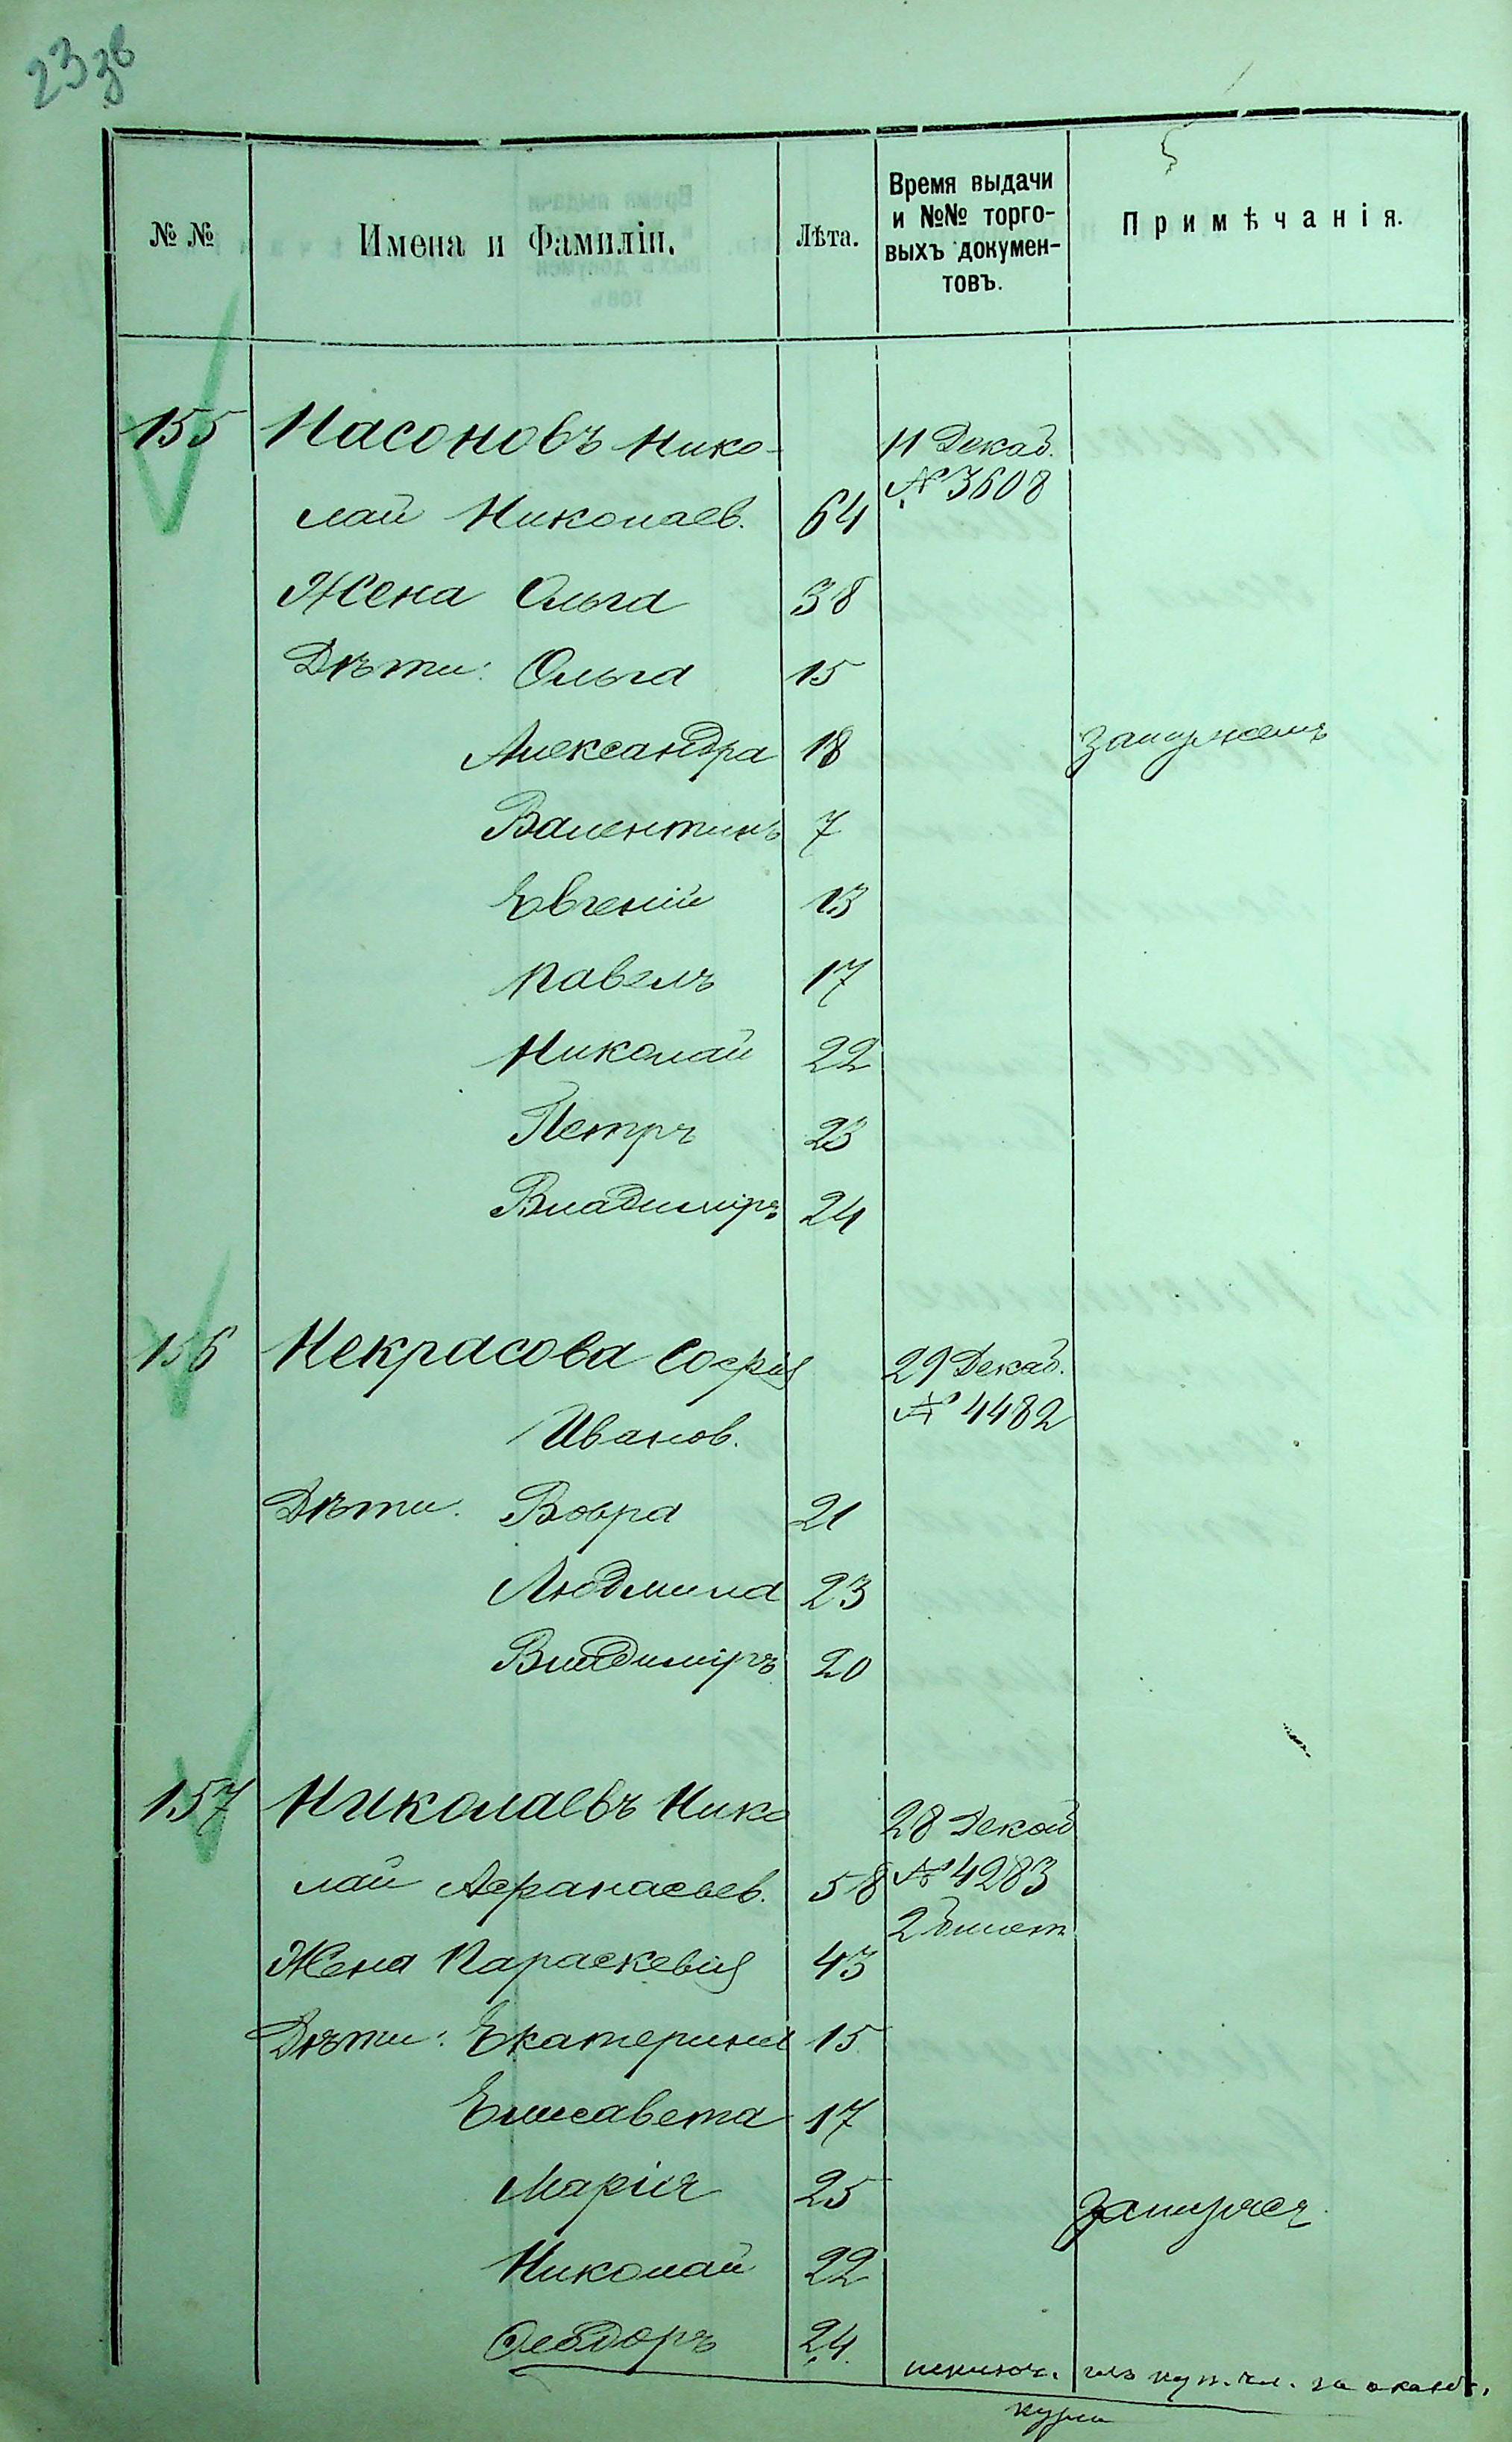 23 зв
№ №
Имена и Фамиліи.
Лѣта.
Время выдачи
и №№ торго-
выхъ докумен-
товъ.
Примѣчанія.
155 Насоновъ Нико- 11 Декаб.
№ 3608
лай Николаев. 64
Жена Ольга 38
Дѣти: Ольга 15
Александра 18 замужемъ
Валентинъ 7
Евгеній 13
Павелъ 17
Николай 22
Петръ 23
Владиміръ 24
156 Некрасова Софія 29 Декаб.
Иванов. № 4482
Дѣти. Вѣра 21
Людмила 23
Владиміръ 20
157 Николаевъ Нико 28 Декаб
лай Афанасьев. 58 № 4283
2 билет
Жена Параскевія 43
Дѣти: Екатерина 15
Елисавета 17
Марія 25 замужем
Николай 22
Ѳеодоръ 24. исключ. изъ куп. за оконч.
курса